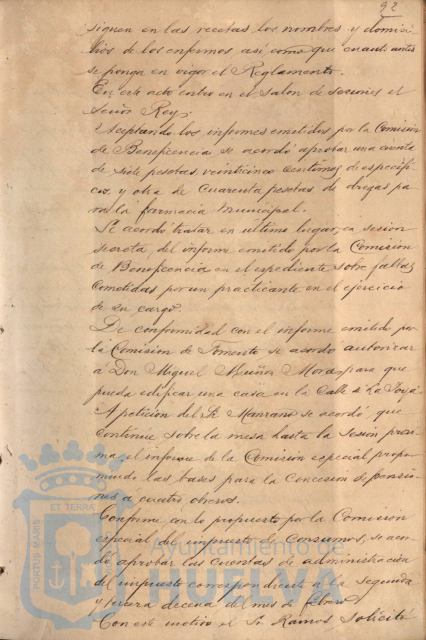 92
siguen en las recetas los nombres y domici
lios de los enfermos asi como que cuanto antes
se ponga en vigor el Reglamento.
En este acto entro en el salon de sesiones el
Señor Rey.
Aceptando los informes emitidos por la Comision
de Beneficencia se acordó aprobar una cuenta
de siete pesetas veinticinco centimos de especifi
cos, y otra de cuarenta pesetas de drogas pa
ra la farmacia Municipal.
Se acordó tratar en ultimo lugar, en sesion
secreta, del informe emitido por la Comision
de Beneficencia en el expediente sobre faltas
cometidas por un practicante en el ejercicio
de su cargo.
De conformidad con el informe emitido por
la Comision de Fomento se acordo autorizar
a Don Miguel Muñoz Mora para que
pueda edificar una casa en la Calle de La Joya.
A peticion del Sr. Manzano se acordó que
continue sobre la mesa hasta la sesion proxi
ma, el informe de la Comision especial propo
niendo las bases para la concesion de pensio
nes a cuatro obreros.
Conforme con lo propuesto por la Comision
especial del impuesto de Consumos, se acor
dó aprobar las cuentas de administracion
del impuesto correspondiente a la segunda
y tercera decena del mes de Febrero
Con este motivo el Sr. Ramos Solicitó
PORTUS MARIS ET TERRÆ
Ayuntamiento de
HUELVA